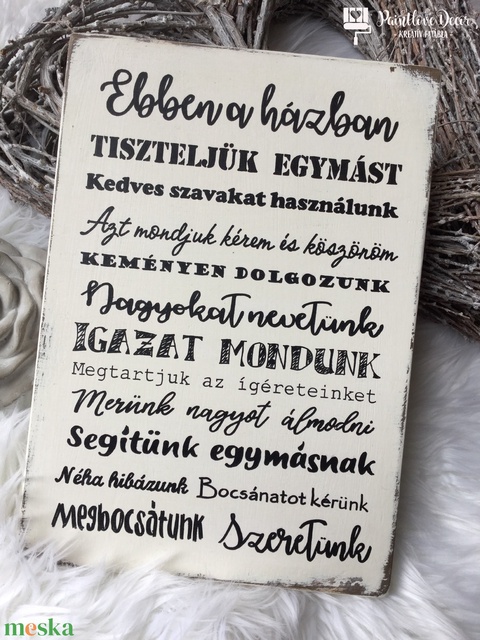 Paintlove Decor
- KREATÍV FATÁBLA -
Ebben a házban
TISZTELJÜK EGYMÁST
Kedves szavakat használunk
Azt mondjuk kérem és köszönöm
KEMÉNYEN DOLGOZUNK
Nagyokat nevetünk
IGAZAT MONDUNK
Megtartjuk az ígéreteinket
Merünk nagyot álmodni
Segítünk egymásnak
Néha hibázunk Bocsánatot kérünk
Megbocsátunk Szeretünk
meska